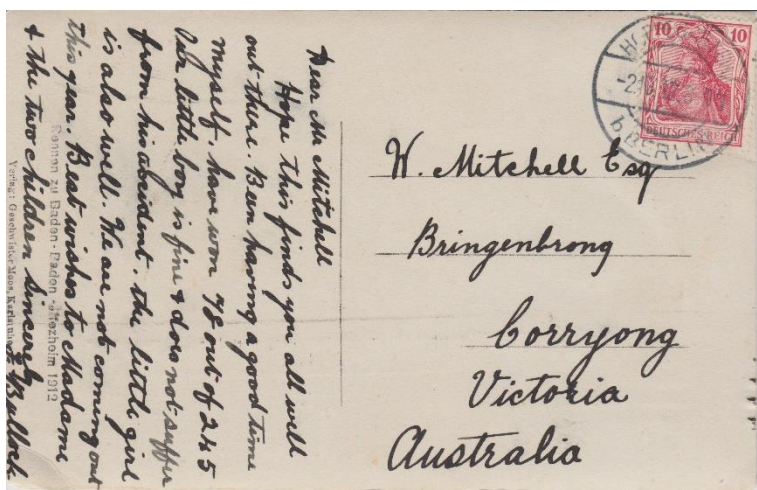 Dear Mr Mitchell
Hope this finds you all well
out there. Been having a good time
myself. have won 78 out of 245
Our little boy is fine & does not suffer
from his accident. the little girl
is also well. We are not coming out
this year. Best wishes to Madame
& the two children Sincerely
Bullock
Rennen zu Baden-Baden - Iffezheim 1912
Verlag: Geschwister Moos, Karlsruhe
10 10
DEUTSCHES REICH
b. BERLIN
W. Mitchell Esq
Bringenbrong
Corryong
Victoria
Australia